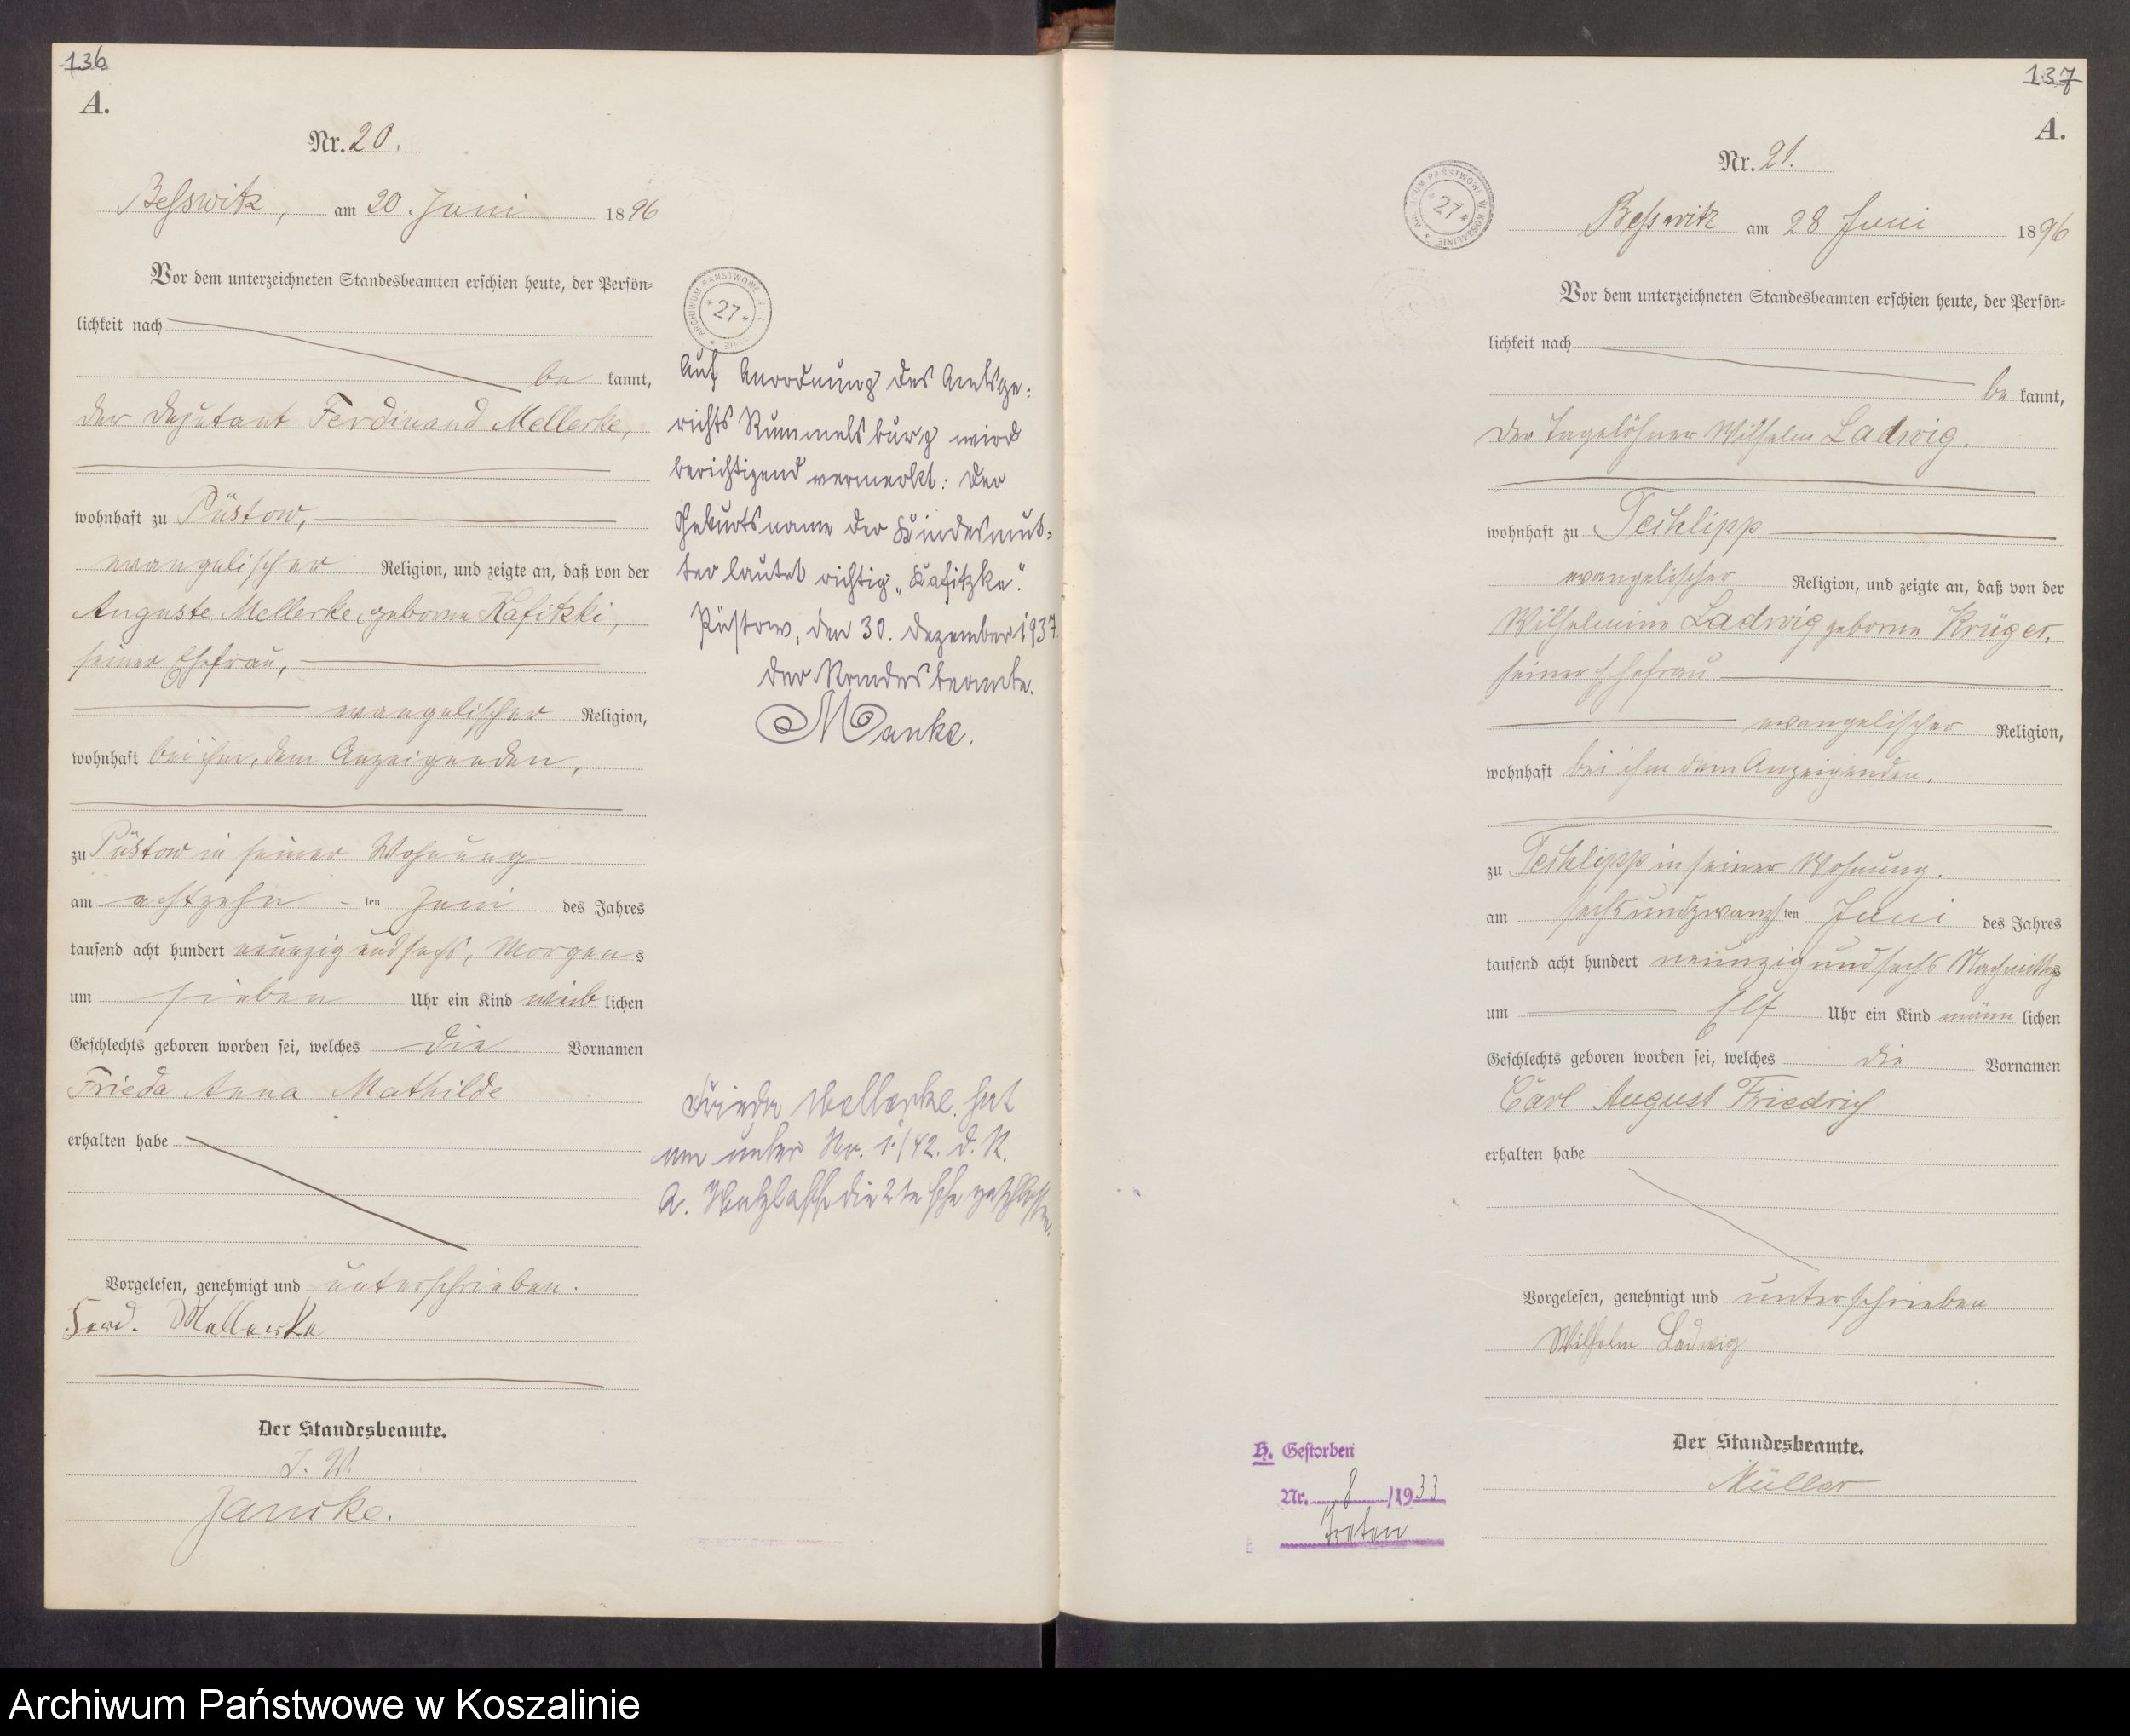 136
A.
Nr. 20.
Besswitz, am 20. Juni 1896
Vor dem unterzeichneten Standesbeamten erschien heute, der Persön=
lichkeit nach
be kannt,
der Deputant Ferdinand Mellerke,
wohnhaft zu Püstow,
evangelischer Religion, und zeigte an, daß von der
Auguste Mellerke, geborne Kafitzki,
seiner Ehefrau,
evangelischer Religion,
wohnhaft bei ihm, dem Anzeigenden,
zu Püstow in seiner Wohnung
am achtzehn - ten Juni des Jahres
tausend acht hundert neunzig und sechs, Morgens
um sieben Uhr ein Kind weib lichen
Geschlechts geboren worden sei, welches die Vornamen
Frieda Anna Mathilde
erhalten habe
Vorgelesen, genehmigt und unterschrieben.
Ferd. Mellerke
Der Standesbeamte.
I. V.
Jancke.
ARCHIWUM PAŃSTWOWE
*27*
Auf Anordnung des Amtsge=
richts Rummelsburg wird
berichtigend vermerkt: Der
Geburtsname der Kindesmut=
ter lautet richtig „Kafitzke“.
Püstow, den 30. Dezember 1937.
Der Standesbeamte.
Manke.
Frieda Mellerke hat
unter Nr. 1/42. d. R.
die 2te Ehe geschlossen.
137
A.
Nr. 21.
ARCHIWUM PAŃSTWOWE W KOSZALINIE
*27*
Besswitz am 28 Juni 1896
Vor dem unterzeichneten Standesbeamten erschien heute, der Persön=
lichkeit nach
be kannt,
der Tagelöhner Wilhelm Ladwig.
wohnhaft zu Techlipp
evangelischer Religion, und zeigte an, daß von der
Wilhelmine Ladwig geborne Krüger,
seiner Ehefrau
evangelischer Religion,
wohnhaft bei ihm dem Anzeigenden.
zu Techlipp in seiner Wohnung.
am sechsundzwanzig ten Juni des Jahres
tausend acht hundert neunzig und sechs Nachmittags
um Elf Uhr ein Kind männ lichen
Geschlechts geboren worden sei, welches die Vornamen
Carl August Friedrich
erhalten habe
Vorgelesen, genehmigt und unterschrieben
Wilhelm Ladwig
Der Standesbeamte.
Müller
H. Gestorben
Nr. 8 /1933
Treten
Archiwum Państwowe w Koszalinie